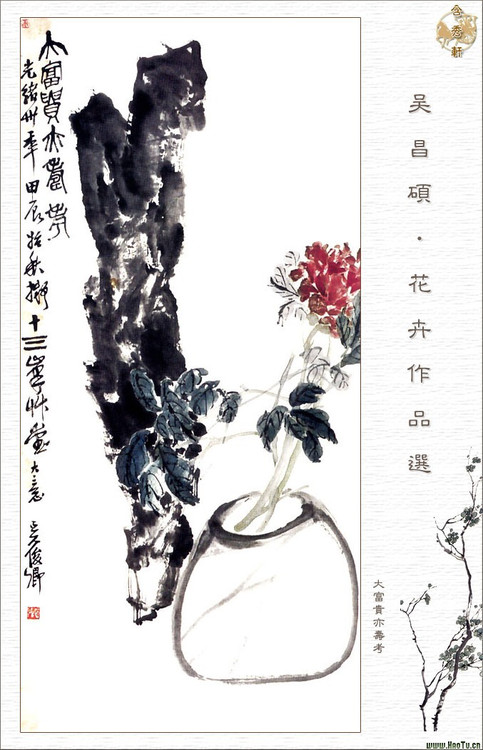 大富貴亦壽考
光緒卅年甲辰始秋擬十三峯艸堂大意 吳俊卿
今秀軒
吳昌碩·花卉作品選
大富貴亦壽考
www.HaoTu.cn